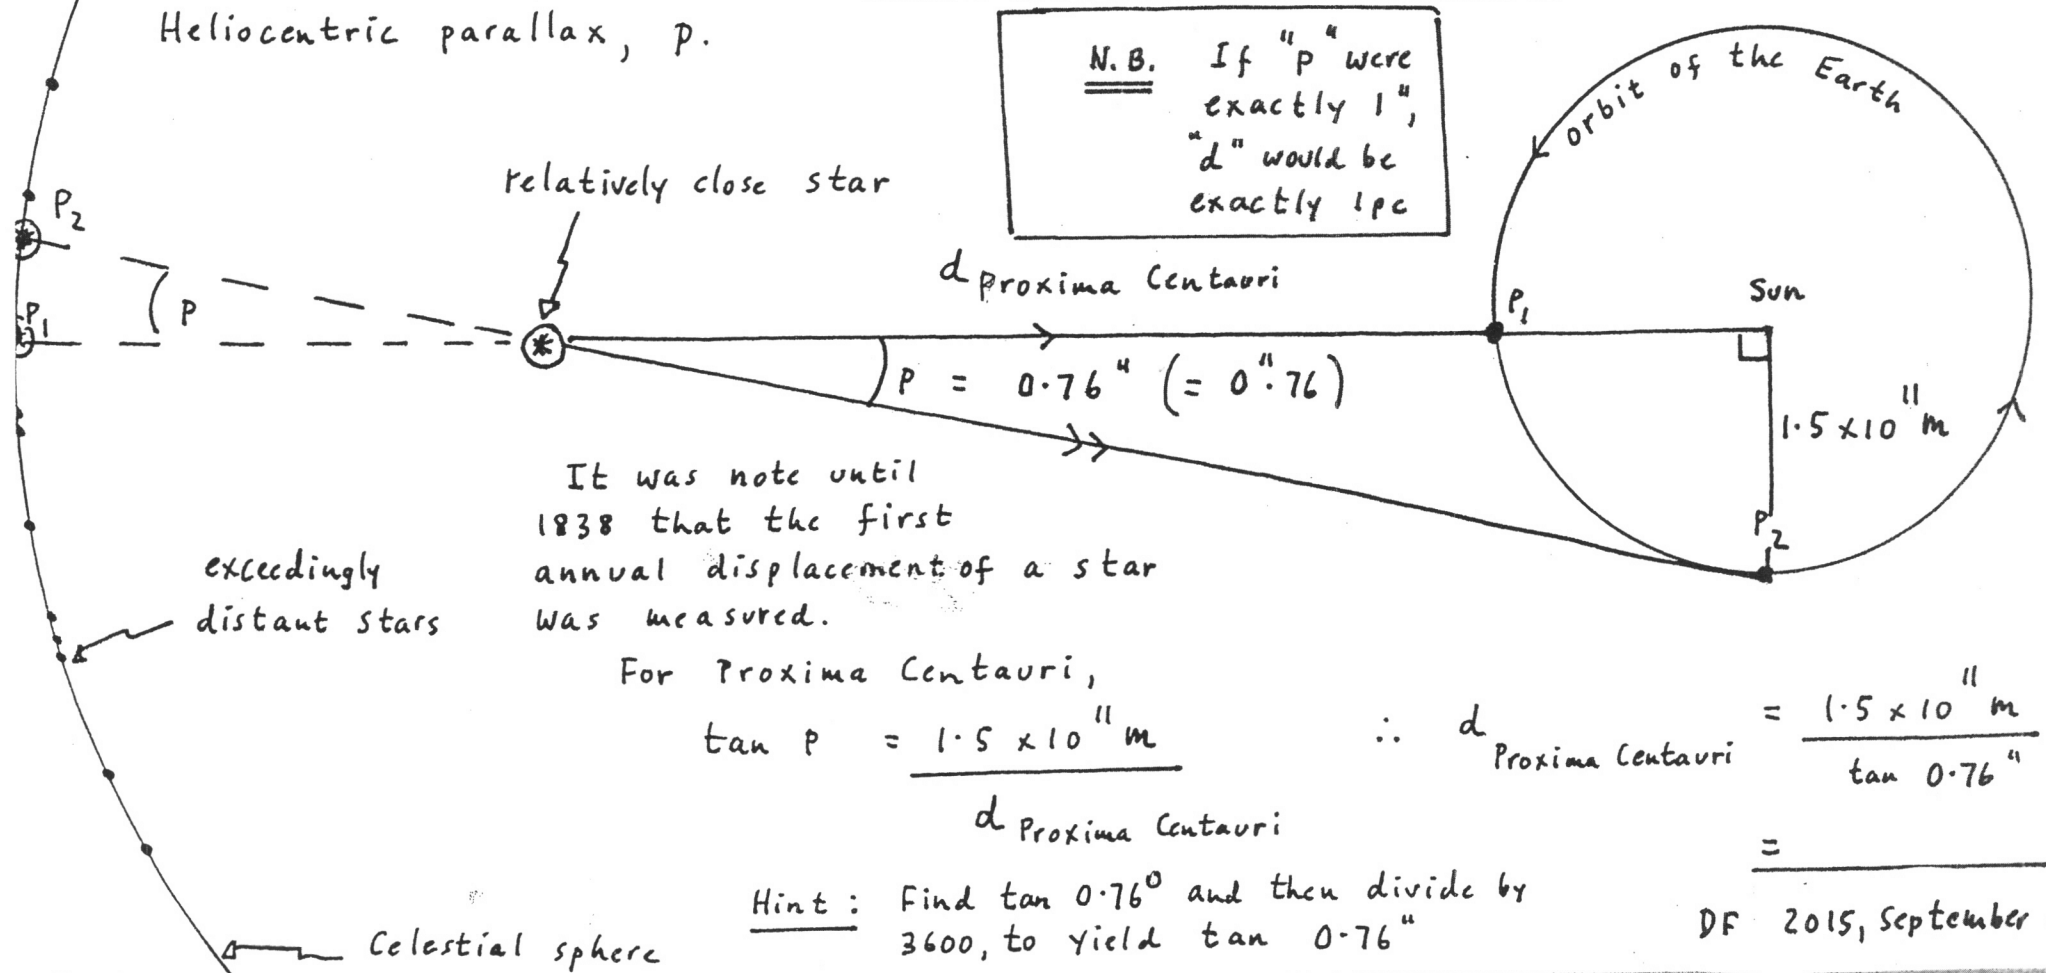 Heliocentric parallax, p.
N.B. If "p" were
exactly 1",
"d" would be
exactly 1pc
orbit of the Earth
relatively close star
P₂
P₁
p
d Proxima Centauri
P₁
Sun
p = 0.76" (= 0".76)
1.5 × 10¹¹ m
P₂
It was note until
1838 that the first
annual displacement of a star
was measured.
exceedingly
distant stars
For Proxima Centauri,
tan p = 1.5 × 10¹¹ m
d Proxima Centauri
∴ d Proxima Centauri = 1.5 × 10¹¹ m
tan 0.76"
=
Hint: Find tan 0.76° and then divide by
3600, to yield tan 0.76"
DF 2015, September
Celestial sphere